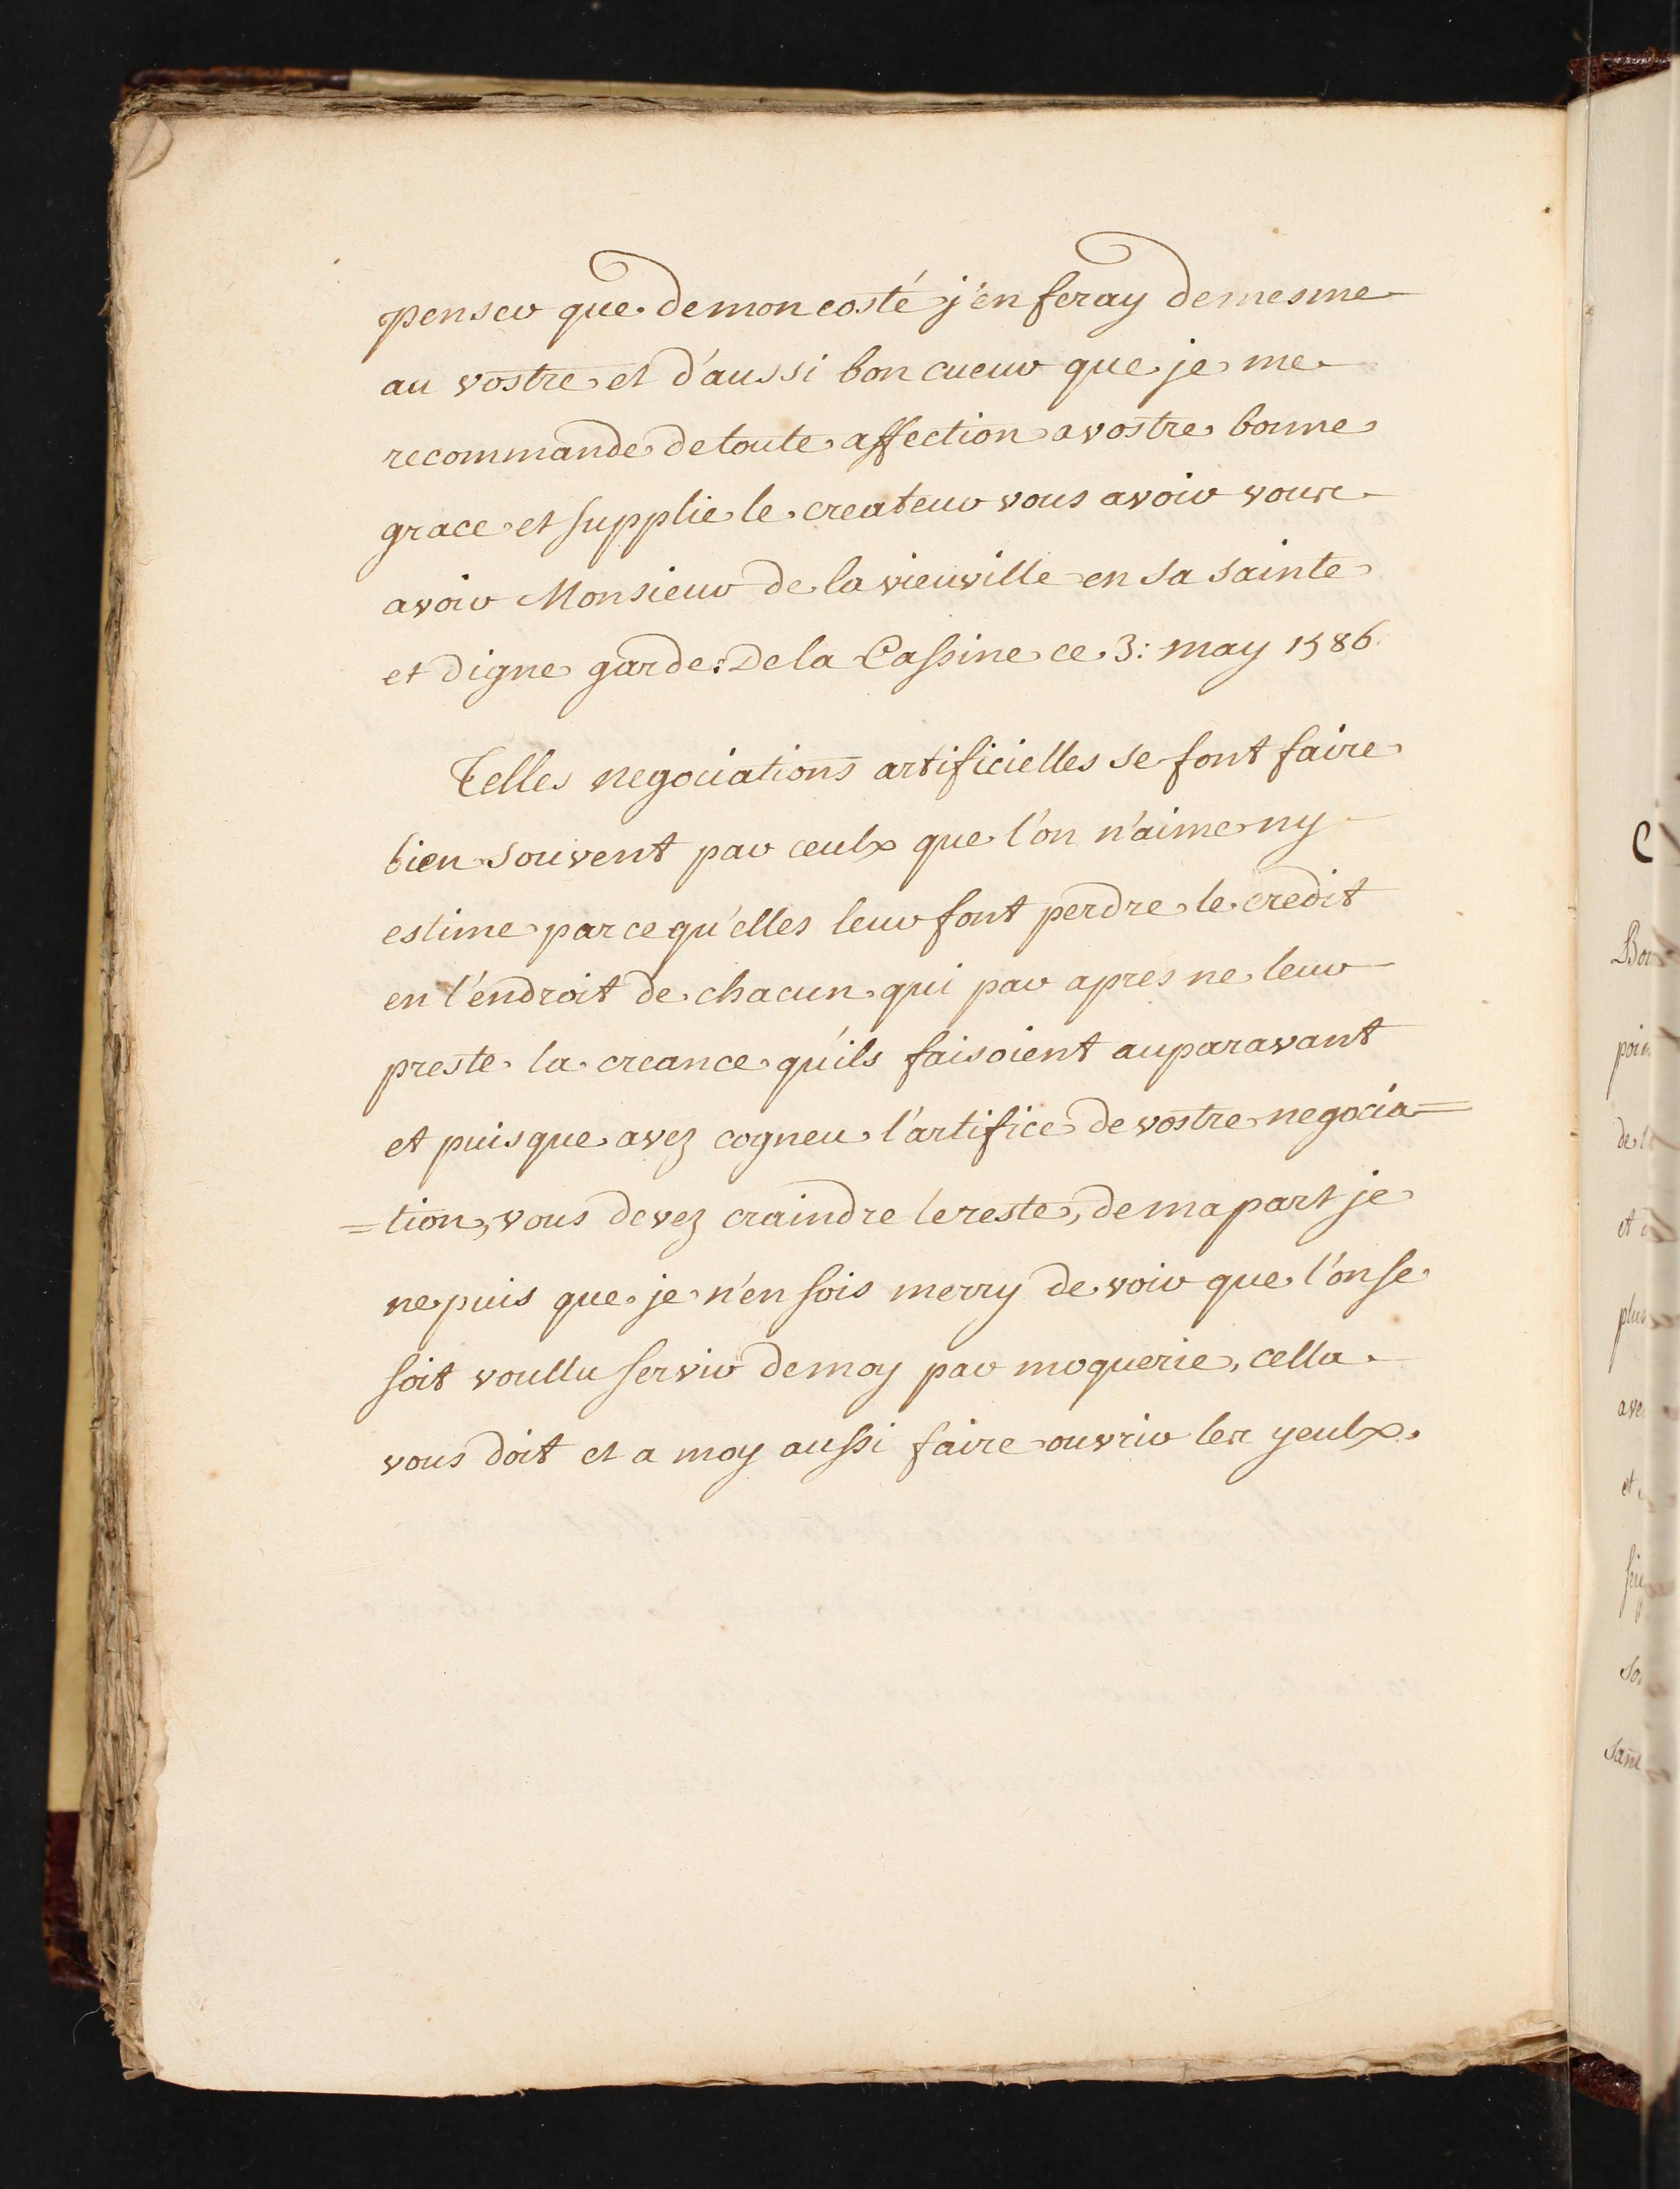 penser que de mon costé j'en feray de mesme
au vostre et d'aussi bon cueur que je me
recommande de toute affection a vostre bonne
grace et supplie le createur vous avoir vous
avoir Monsieur de la vieuville en sa sainte
et digne garde: De la Cassine ce 3: may 1586.
Telles negociations artificielles se font faire
bien souvent par ceulx que l'on n'aime ny
estime parce qu'elles leur font perdre le credit
en l'endroit de chacun qui par apres ne leur
preste la creance qu'ils faisoient auparavant
et puisque avez cogneu l'artifice de vostre negocia=
=tion, vous devez craindre le reste, de ma part je
ne puis que je n'en sois merry de voir que l'on se
soit voullu servir de moy par moquerie, cella
vous doit et a moy aussi faire ouvrir les yeulx.